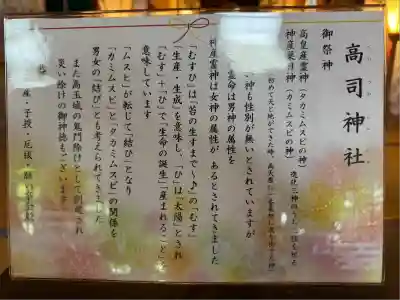 高司神社
御祭神
高皇産霊神(タカミムスビの神)
神産巣日神(カミムスビの神)
造化三神のうち二柱を祀る
初めて天と地ができた時、高天原に
神も性別が無いとされていますが
産霊神は女神の属性が あるとされてきました
霊命は男神の属性を
「むすひ」は「苔の生すまで〜♪」の「むす」
「生産・生成」を意味し、「ひ」は「太陽」とされ
「むす」+「ひ」で「生命の誕生」「産まれること」を
意味しています
「ムスビ」が転じて「結び」となり
「カミムスビ」と「タカミムスビ」の関係を
男女の「結び」とも考えられてきました
また高玉城の鬼門除けとして創建され
災い除けの御神徳もございます
産・子授・厄祓・願い